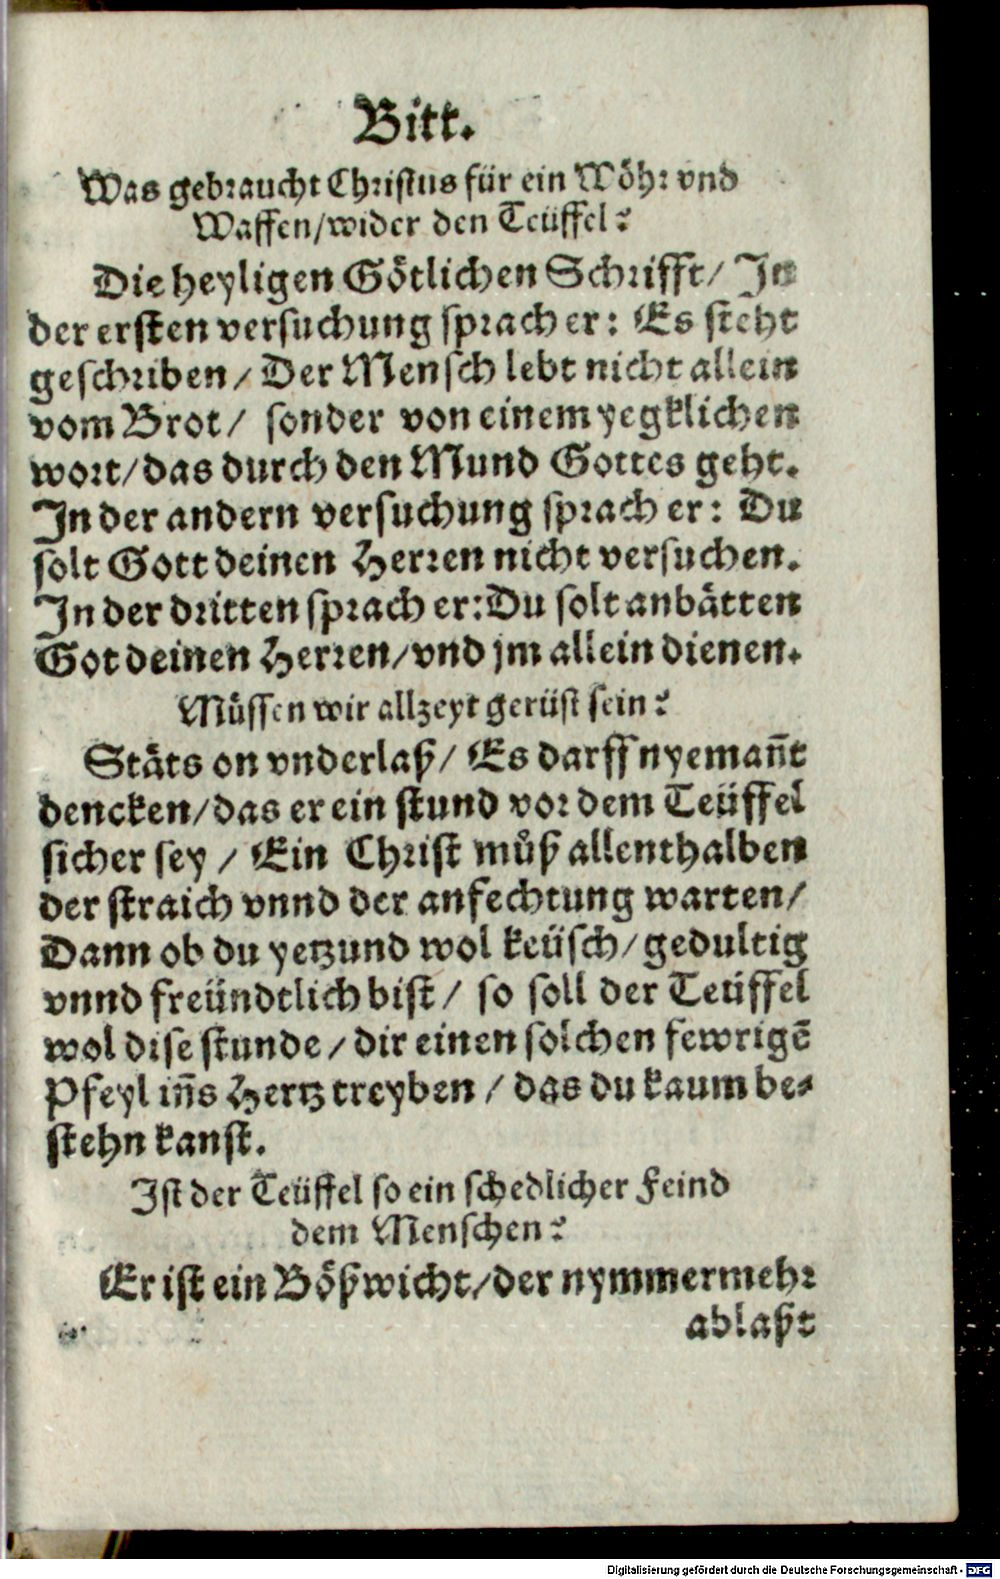 Bitt.
Was gebraucht Christus für ein Wöhr vnd
Waffen/wider den Teüffel?
Die heyligen Götlichen Schrifft/ In
der ersten versuchung sprach er: Es steht
geschriben/ Der Mensch lebt nicht allein
vom Brot/ sonder von einem yegklichen
wort/das durch den Mund Gottes geht.
In der andern versuchung sprach er: Du
solt Gott deinen Herren nicht versuchen.
In der dritten sprach er:Du solt anbätten
Got deinen Herren/vnd jm allein dienen.
Müssen wir allzeyt gerüst sein?
Stäts on vnderlaß/ Es darff nyemañt
dencken/das er ein stund vor dem Teüffel
sicher sey / Ein Christ můß allenthalben
der straich vnnd der anfechtung warten/
Dann ob du yetzund wol keüsch/gedultig
vnnd freündtlich bist/ so soll der Teüffel
wol dise stunde/dir einen solchen fewrigē
Pfeyl iñs Hertz treyben / das du kaum be-
stehn kanst.
Ist der Teüffel so ein schedlicher Feind
dem Menschen?
Er ist ein Bößwicht/der nymmermehr
ablaßt
Digitalisierung gefördert durch die Deutsche Forschungsgemeinschaft - DFG